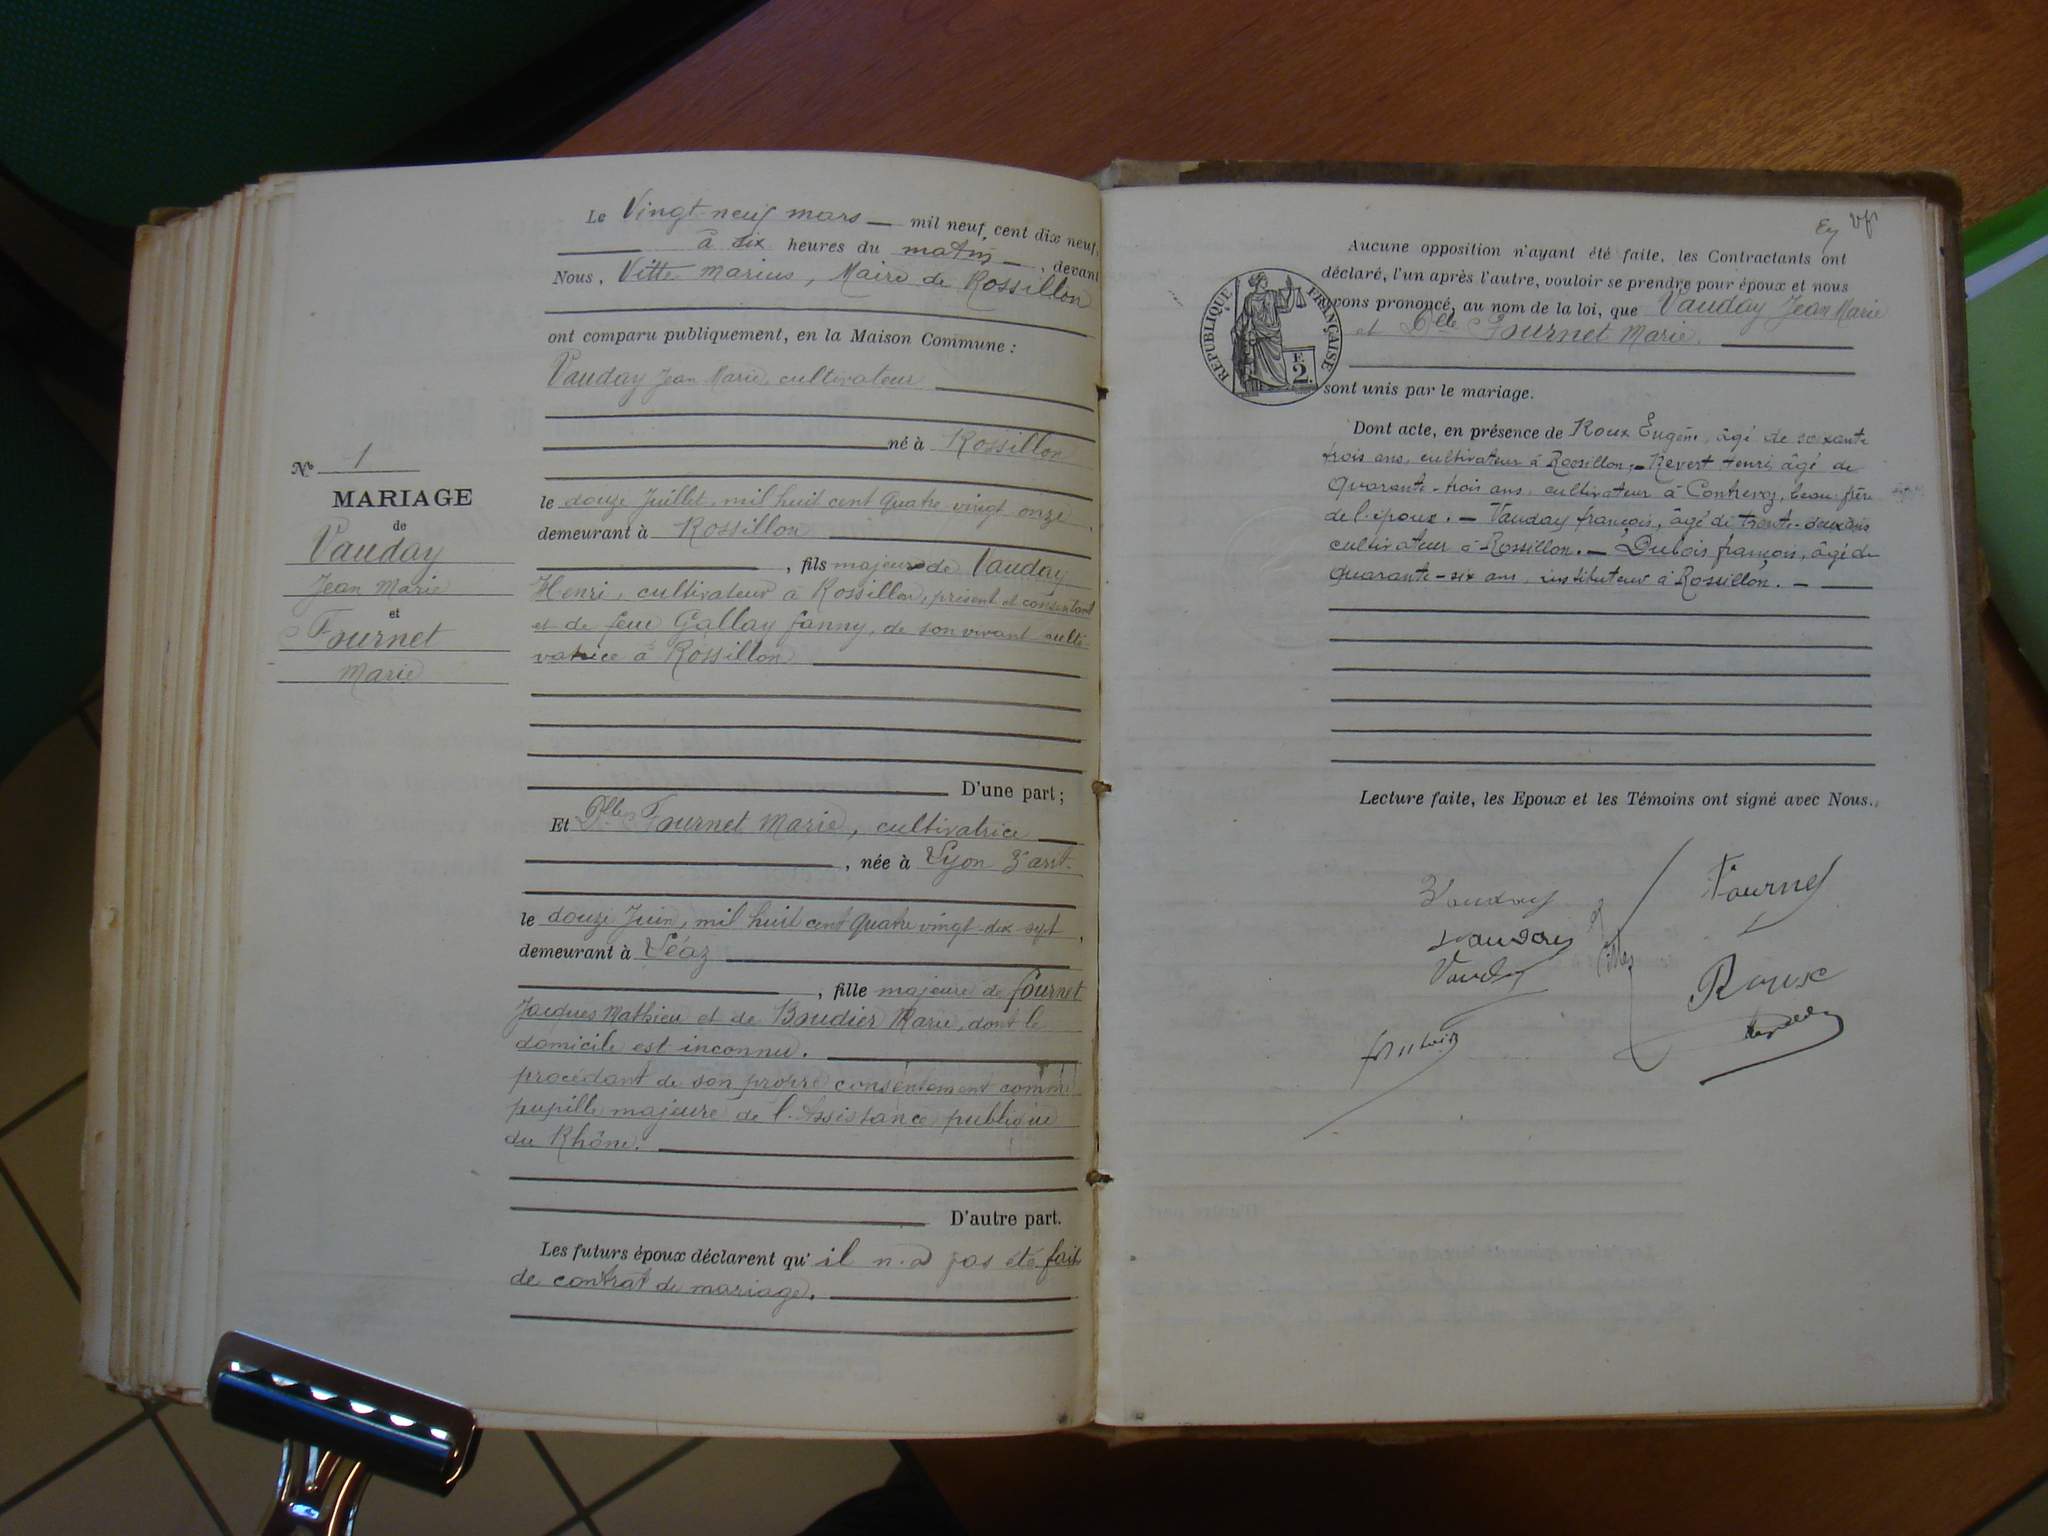 Le Vingt-neuf mars — mil neuf cent dix neuf,
à six heures du matin —, devant
Nous, Vitte Marius, Maire de Rossillon
ont comparu publiquement, en la Maison Commune :
Vauday Jean Marie, cultivateur
né à Rossillon
le douze Juillet, mil huit cent quatre vingt onze,
demeurant à Rossillon
, fils majeur de Vauday
Henri, cultivateur à Rossillon, présent et consentant
et de feue Gallay fanny, de son vivant culti-
vatrice à Rossillon
D'une part ;
Et Dlle Fournet Marie, cultivatrice
, née à Lyon 3e arrt.
le douze Juin, mil huit cent quatre vingt-dix-sept,
demeurant à Céaz
, fille majeure de fournet
Jacques Mathieu et de Boudier Marie, dont le
domicile est inconnu.
procédant de son propre consentement comme
pupille majeure de l'Assistance publique
du Rhône.
D'autre part.
Les futurs époux déclarent qu'il n'a pas été fait
de contrat de mariage.
No 1
MARIAGE
de
Vauday
Jean Marie
et
Fournet
Marie
RÉPUBLIQUE FRANÇAISE
F.
2.
Aucune opposition n'ayant été faite, les Contractants ont
déclaré, l'un après l'autre, vouloir se prendre pour époux et nous
avons prononcé, au nom de la loi, que Vauday Jean Marie
et Dlle Fournet Marie.
sont unis par le mariage.
Dont acte, en présence de Roux Eugène, âgé de soixante
trois ans, cultivateur à Rossillon, — Revert Henri, âgé de
quarante-trois ans, cultivateur à Contrevoz, beau-frère
de l'époux. — Vauday françois, âgé de trente-deux ans
cultivateur à Rossillon. — Dubois françois, âgé de
quarante-six ans, instituteur à Rossillon. —
Lecture faite, les Epoux et les Témoins ont signé avec Nous.
Vauday
Fournet
Vauday
Vitte
Vauday
Roux